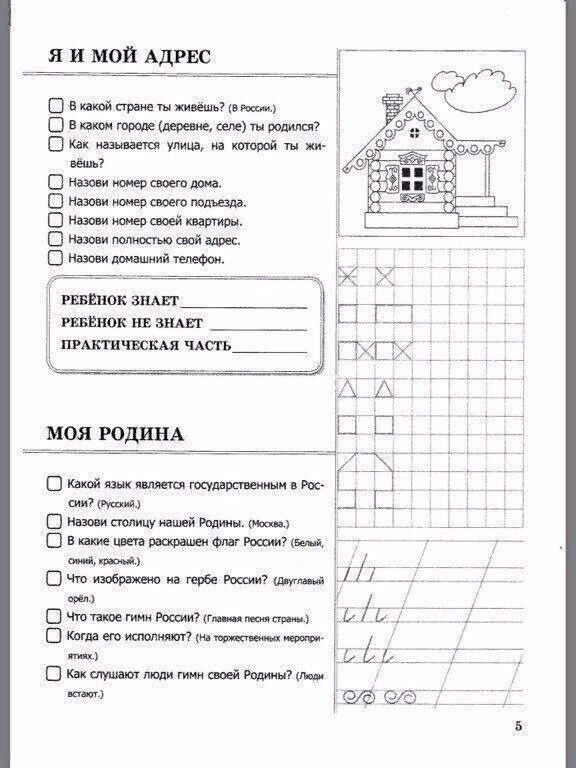 Я И МОЙ АДРЕС
В какой стране ты живёшь? (В России.)
В каком городе (деревне, селе) ты родился?
Как называется улица, на которой ты жи-
вёшь?
Назови номер своего дома.
Назови номер своего подъезда.
Назови номер своей квартиры.
Назови полностью свой адрес.
Назови домашний телефон.
РЕБЁНОК ЗНАЕТ
РЕБЁНОК НЕ ЗНАЕТ
ПРАКТИЧЕСКАЯ ЧАСТЬ
МОЯ РОДИНА
Какой язык является государственным в Рос-
сии? (Русский.)
Назови столицу нашей Родины. (Москва.)
В какие цвета раскрашен флаг России? (Белый,
синий, красный.)
Что изображено на гербе России? (Двуглавый
орёл.)
Что такое гимн России? (Главная песня страны.)
Когда его исполняют? (На торжественных меропри-
ятиях.)
Как слушают люди гимн своей Родины? (Люди
встают.)
5